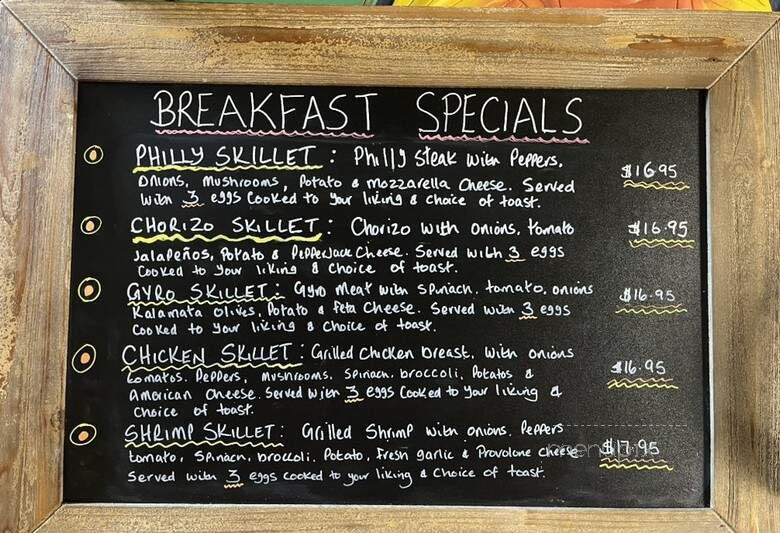 BREAKFAST SPECIALS
PHILLY SKILLET: Philly Steak with Peppers, $16.95
Onions, Mushrooms, Potato & Mozzarella Cheese. Served
with 3 eggs Cooked to Your liking & choice of toast.
CHORIZO SKILLET: Chorizo with onions, tomato $16.95
Jalapeños, Potato & PepperJack Cheese. Served with 3 eggs
Cooked to Your liking & Choice of toast.
GYRO SKILLET: Gyro Meat with Spinach, tomato, onions $16.95
Kalamata Olives, Potato & Feta Cheese. Served with 3 eggs
Cooked to Your liking & Choice of toast.
CHICKEN SKILLET: Grilled Chicken breast, with onions $16.95
tomatos, Peppers, Mushrooms, Spinach, broccoli, Potatos &
American Cheese. Served with 3 eggs Cooked to Your liking &
Choice of toast.
SHRIMP SKILLET: Grilled Shrimp with onions, Peppers $17.95
tomato, Spinach, broccoli, Potato, Fresh garlic & Provolone cheese
Served with 3 eggs cooked to your liking & Choice of toast.